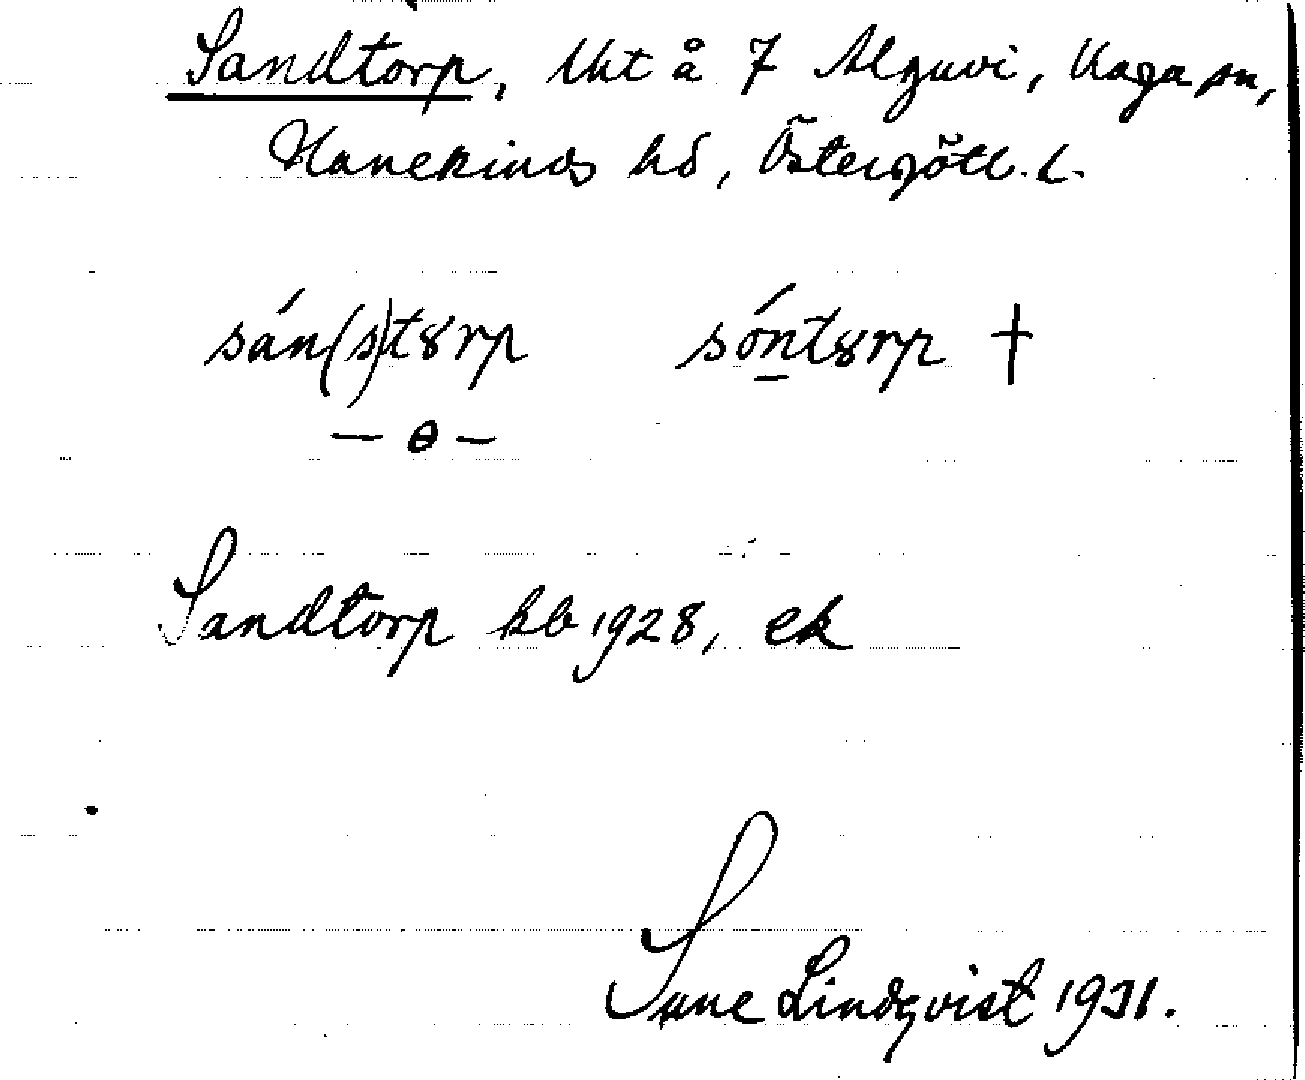 Sandtorp, lht å 7 Alguvi, Kaga sn,
Hanekinds hd, Östergötl. l.
sán(s)tȣrp sóntȣrp †
– ɵ –
Sandtorp kb 1928, ek
Sune Lindqvist 1931.